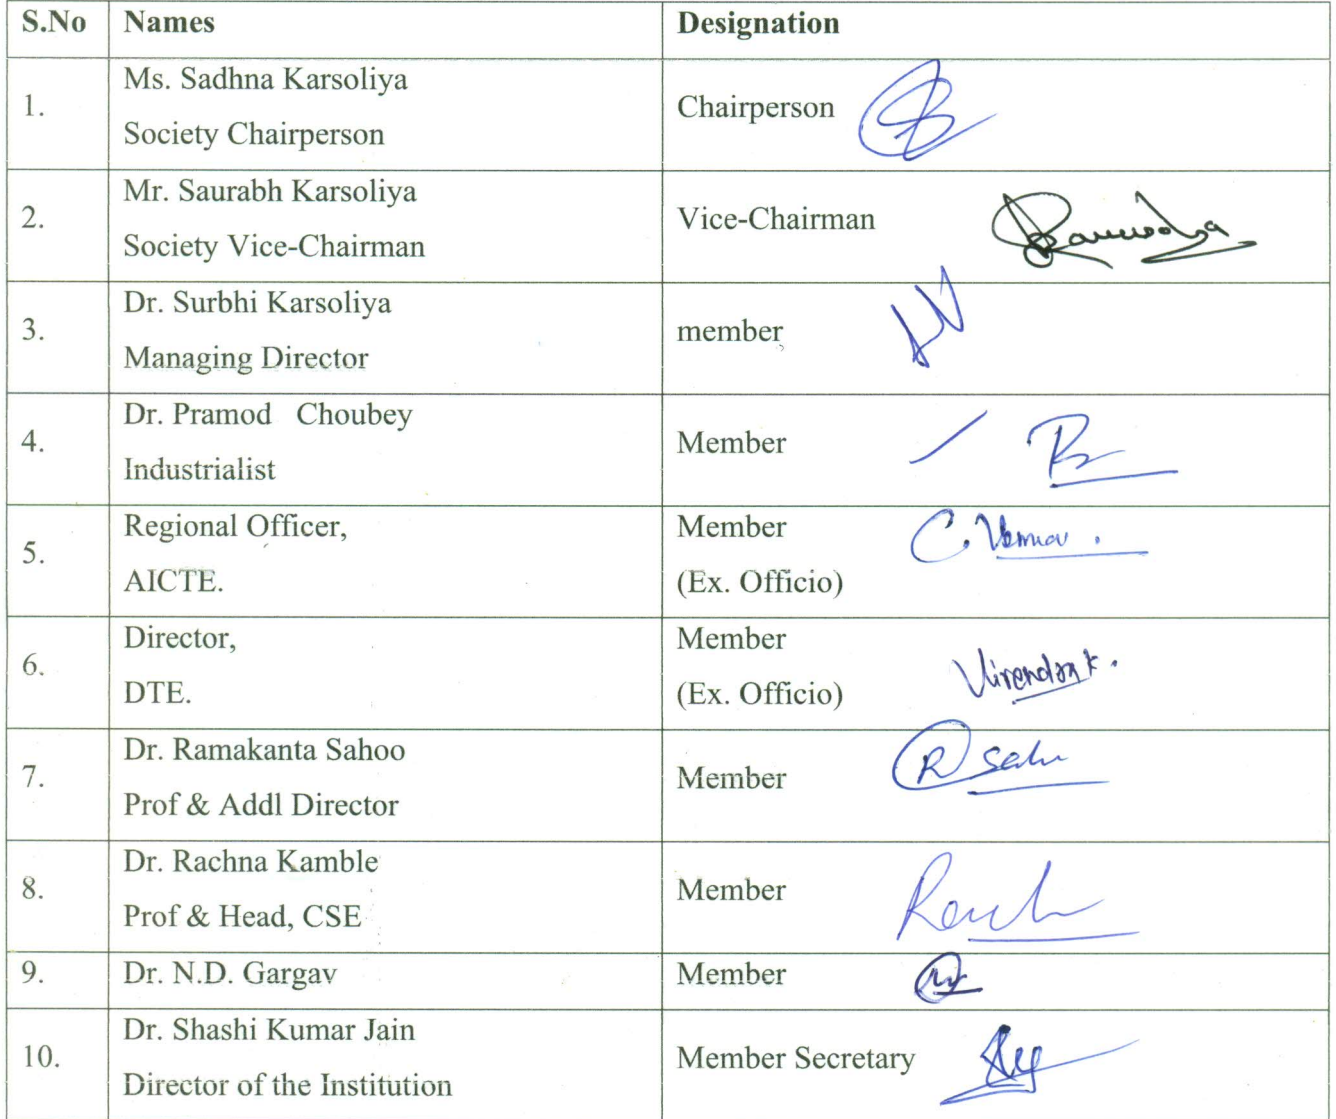 S.No Names Designation
1. Ms. Sadhna Karsoliya
Society Chairperson
Chairperson
2. Mr. Saurabh Karsoliya
Society Vice-Chairman
Vice-Chairman
3. Dr. Surbhi Karsoliya
Managing Director
member
4. Dr. Pramod Choubey
Industrialist
Member
5. Regional Officer,
AICTE.
Member
(Ex. Officio)
C. Verma.
6. Director,
DTE.
Member
(Ex. Officio)
7. Dr. Ramakanta Sahoo
Prof & Addl Director
Member
8. Dr. Rachna Kamble
Prof & Head, CSE
Member
9. Dr. N.D. Gargav
Member
10. Dr. Shashi Kumar Jain
Director of the Institution
Member Secretary